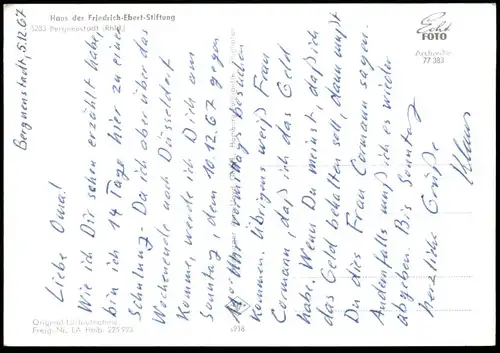 Haus der Friedrich-Ebert-Stiftung
5283 Bergneustadt (Rhld.)
Echt
FOTO
Archiv-Nr.
77 383
Bergneustadt, 5.12.67
Liebe Oma!
Wie ich Dir schon erzählt habe,
bin ich 14 Tage hier zu einer
Schulung. Da ich aber über das
Wochenende nach Düsseldorf
komme, werde ich Dich am
Sonntag, dem 10.12.67 gegen
Uhr vormittags besuchen
kommen. Übrigens weiß Frau
Cormann, daß ich das Geld
habe. Wenn Du meinst, daß ich
das Geld behalten soll, dann mußt
Du dies Frau Cormann sagen.
Andernfalls muß ich es wieder
abgeben. Bis Sonntag
Herzliche Grüße
Klaus
Original-Luftaufnahme
Freig.-Nr. LA Hmb.